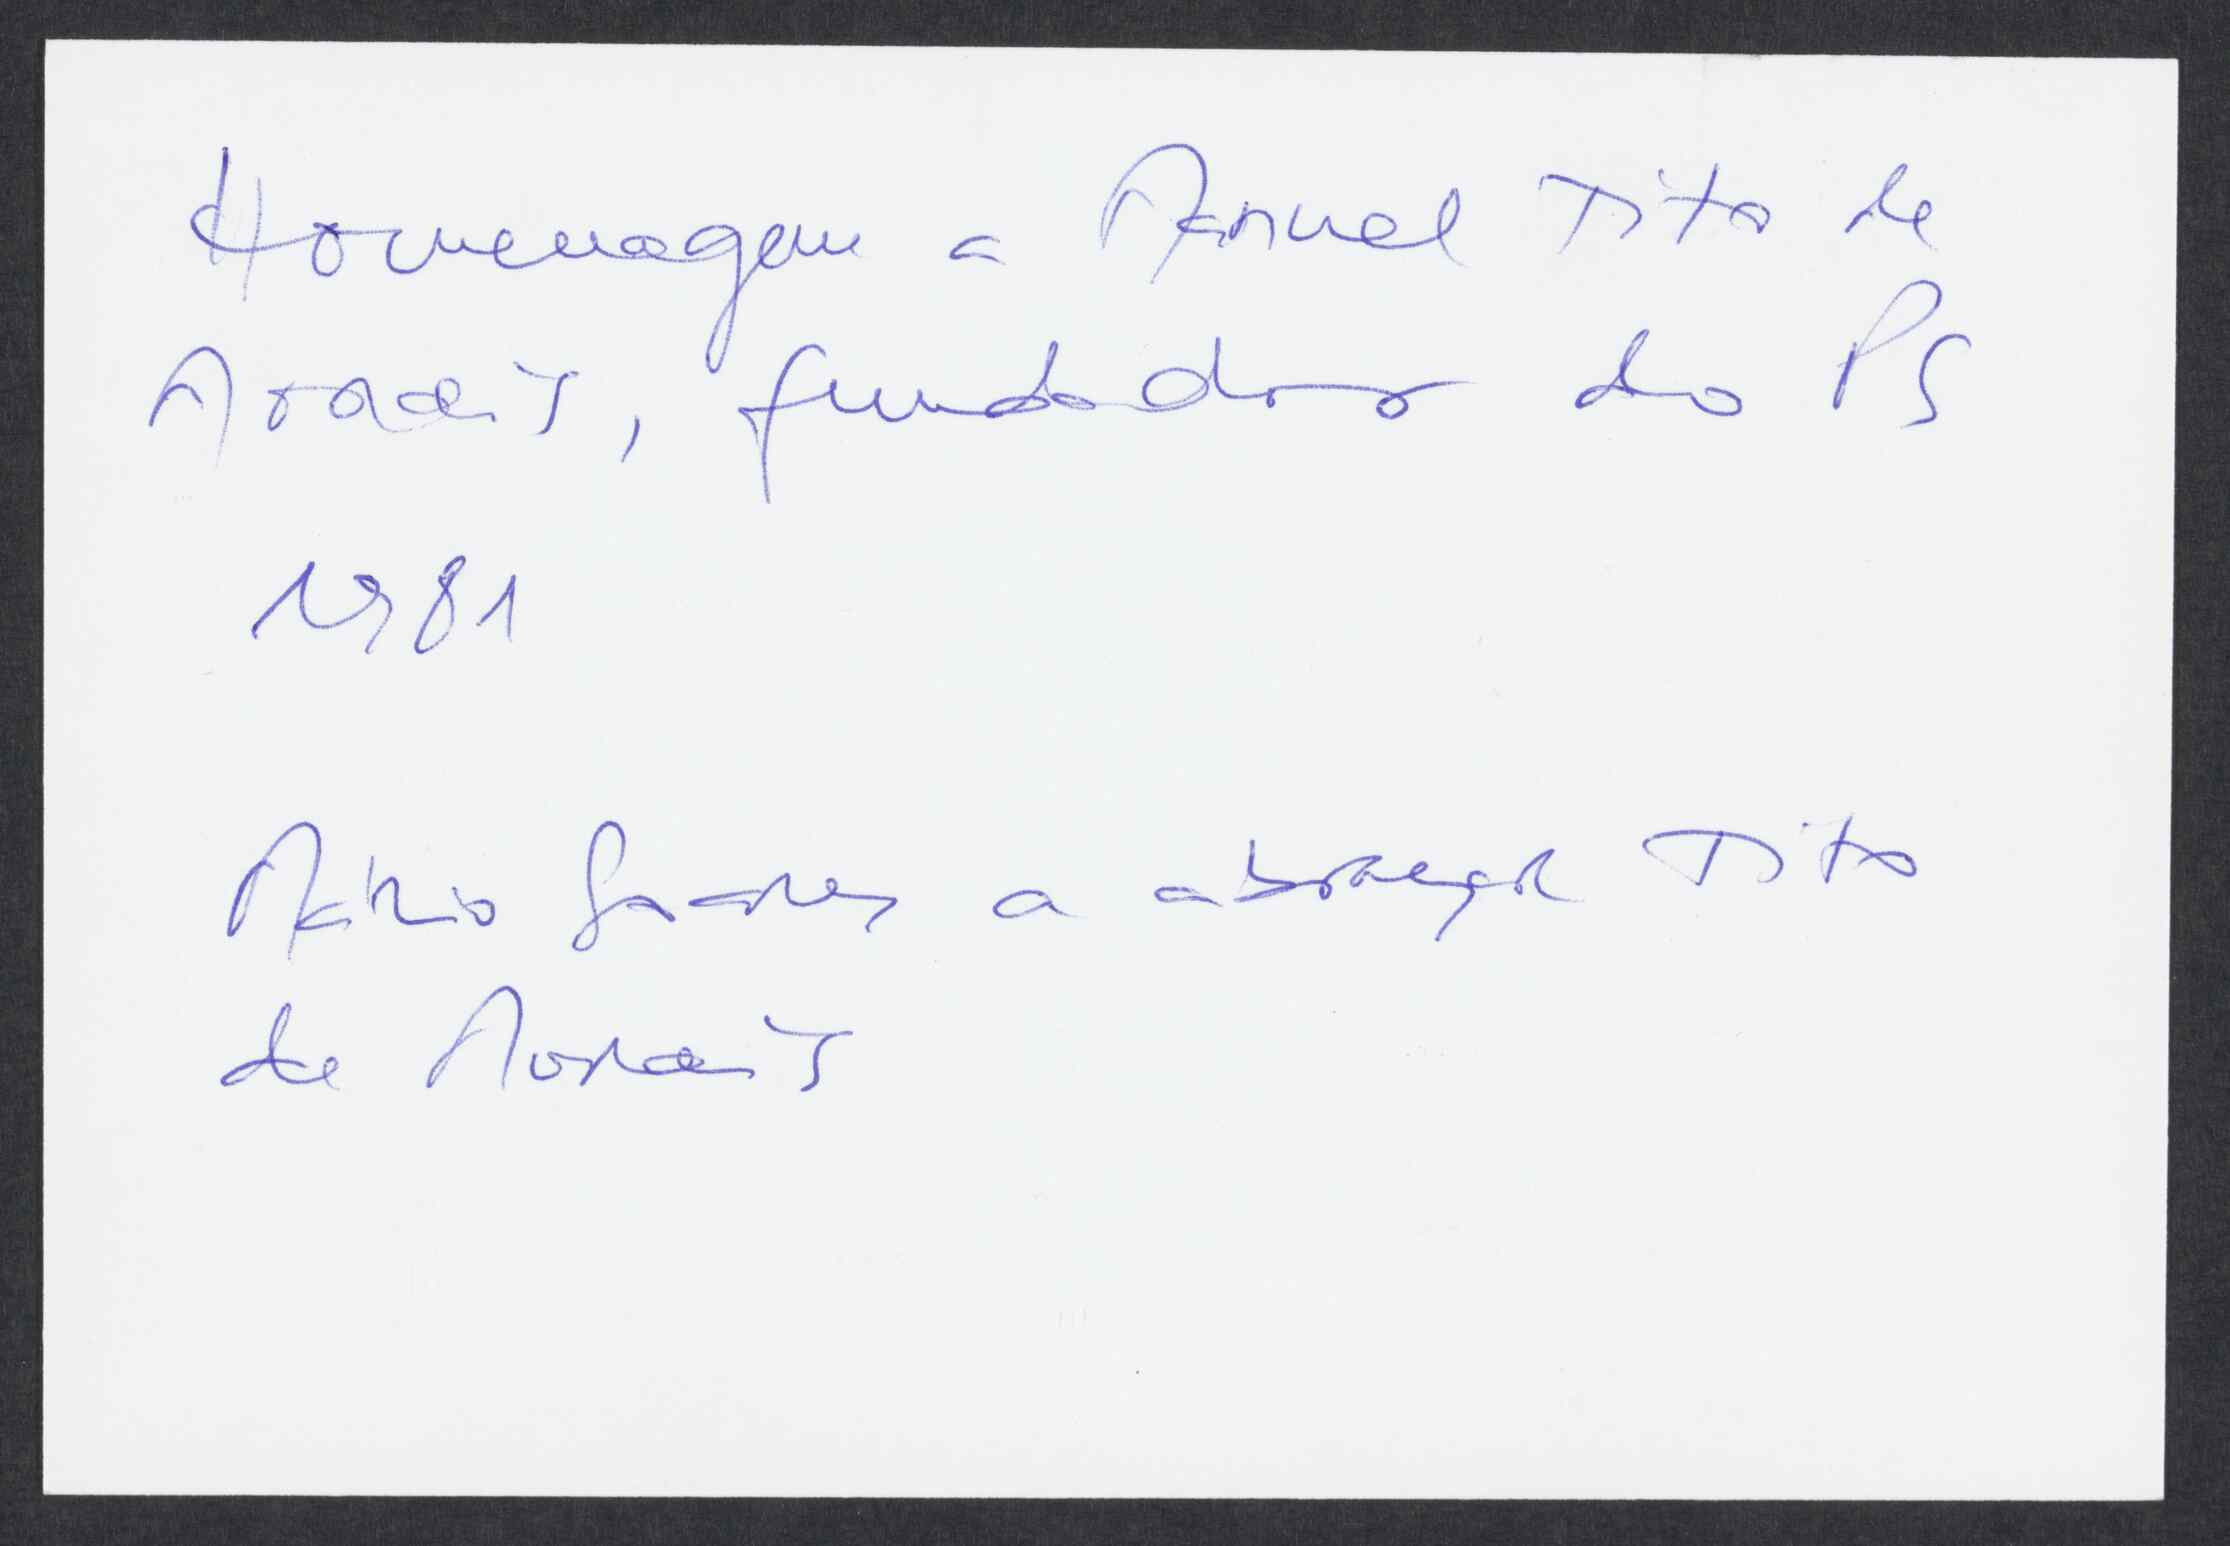 Homenagem a Manuel Tito de
Morais, fundador do PS
1981
Mário Soares a abraçar Tito
de Morais